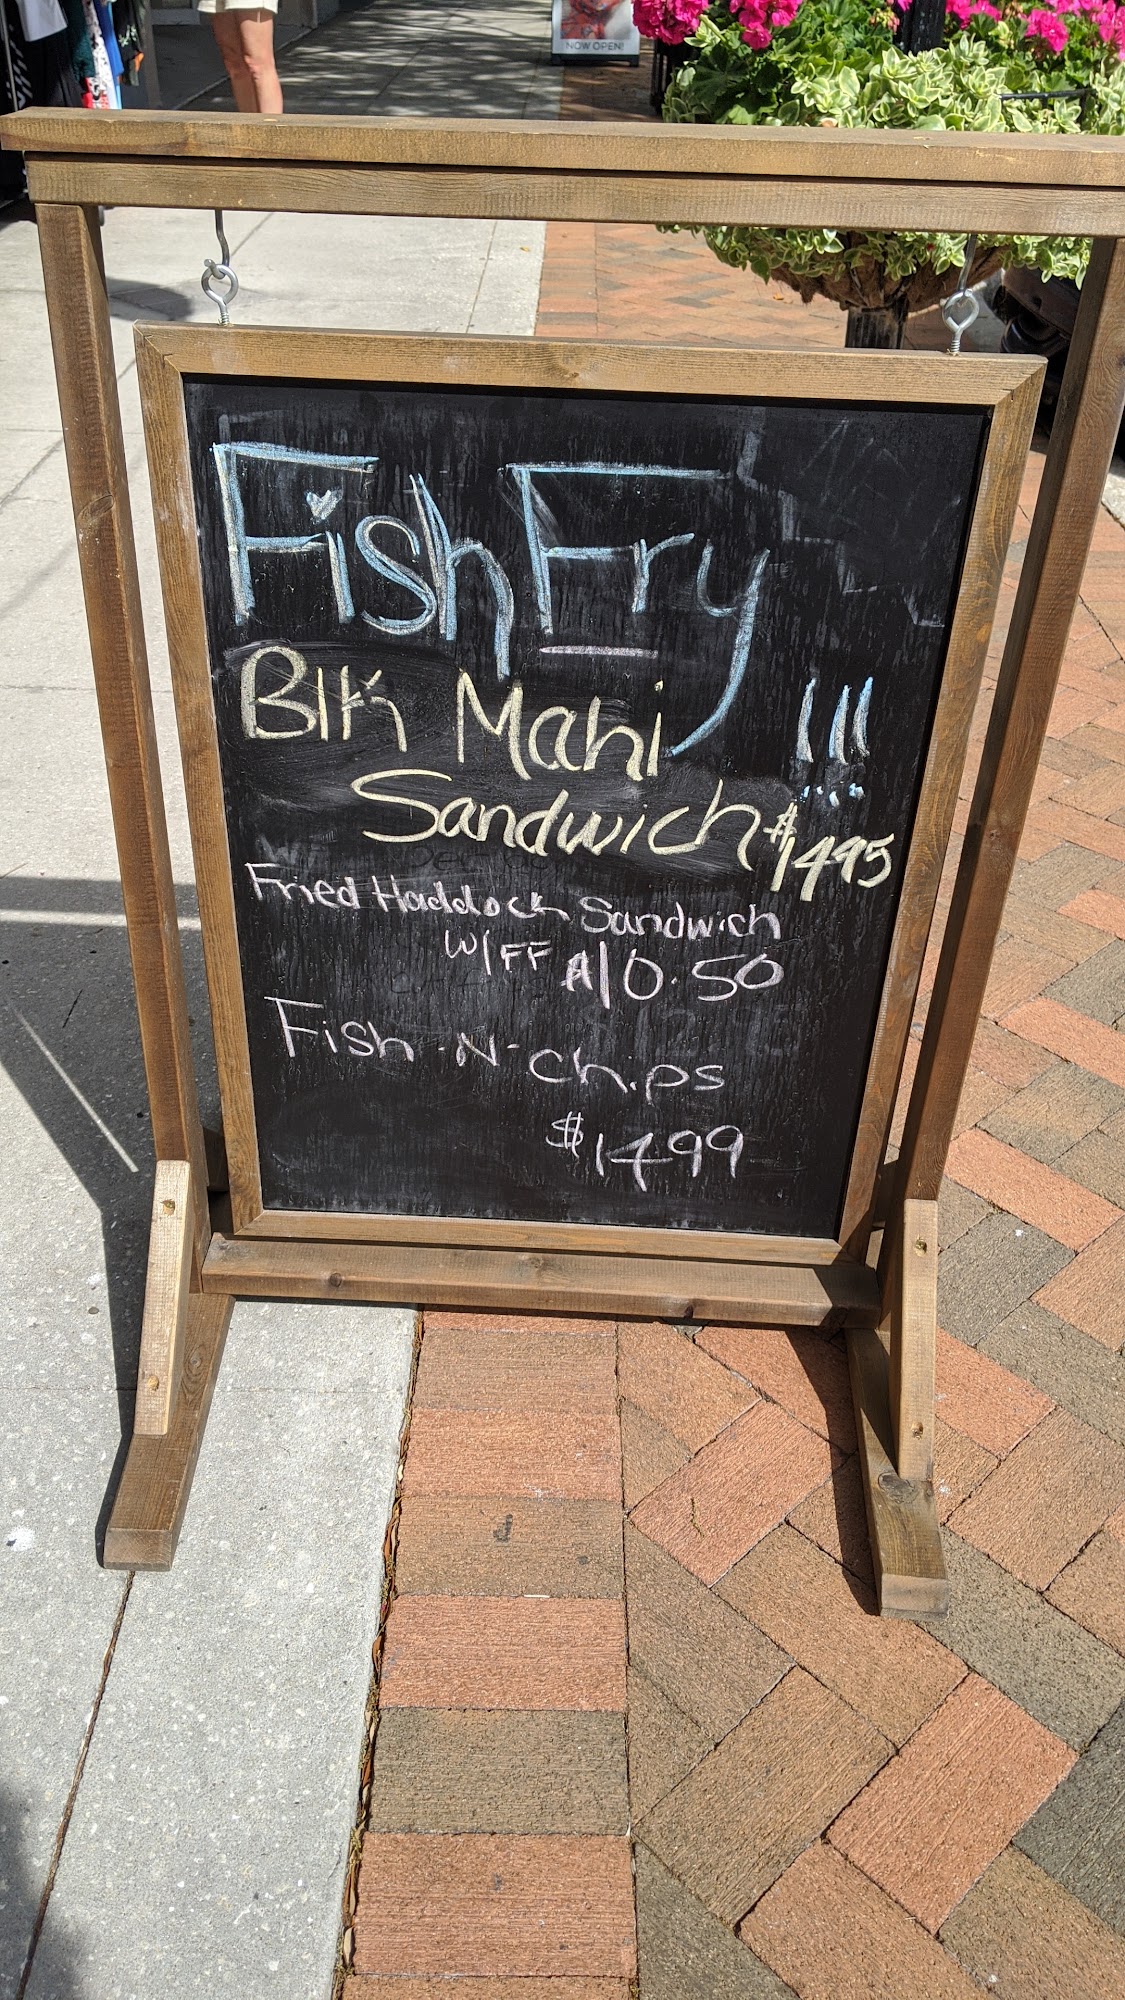 NOW OPEN!
Fish Fry
!!!
Blk Mahi
Sandwich $1495
Fried Haddock Sandwich
W/FF $10.50
Fish -N- Chips
$1499